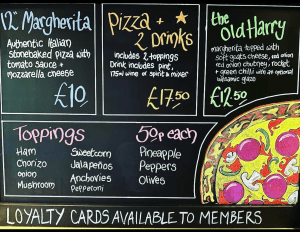 12" Margherita
Authentic Italian
stonebaked pizza with
tomato sauce +
mozzarella cheese
£10
Pizza +
2 Drinks
includes 2 toppings
Drink includes pint,
175ml wine or spirit & mixer
£17.50
the
Old Harry
margherita topped with
soft goats cheese, red onion
red onion chutney, rocket
+ green chilli with an optional
balsamic glaze
£12.50
Toppings
50p each
Ham
Chorizo
onion
Mushroom
Sweetcorn
Jalapeños
Anchovies
Pepperoni
Pineapple
Peppers
Olives
LOYALTY CARDS AVAILABLE TO MEMBERS